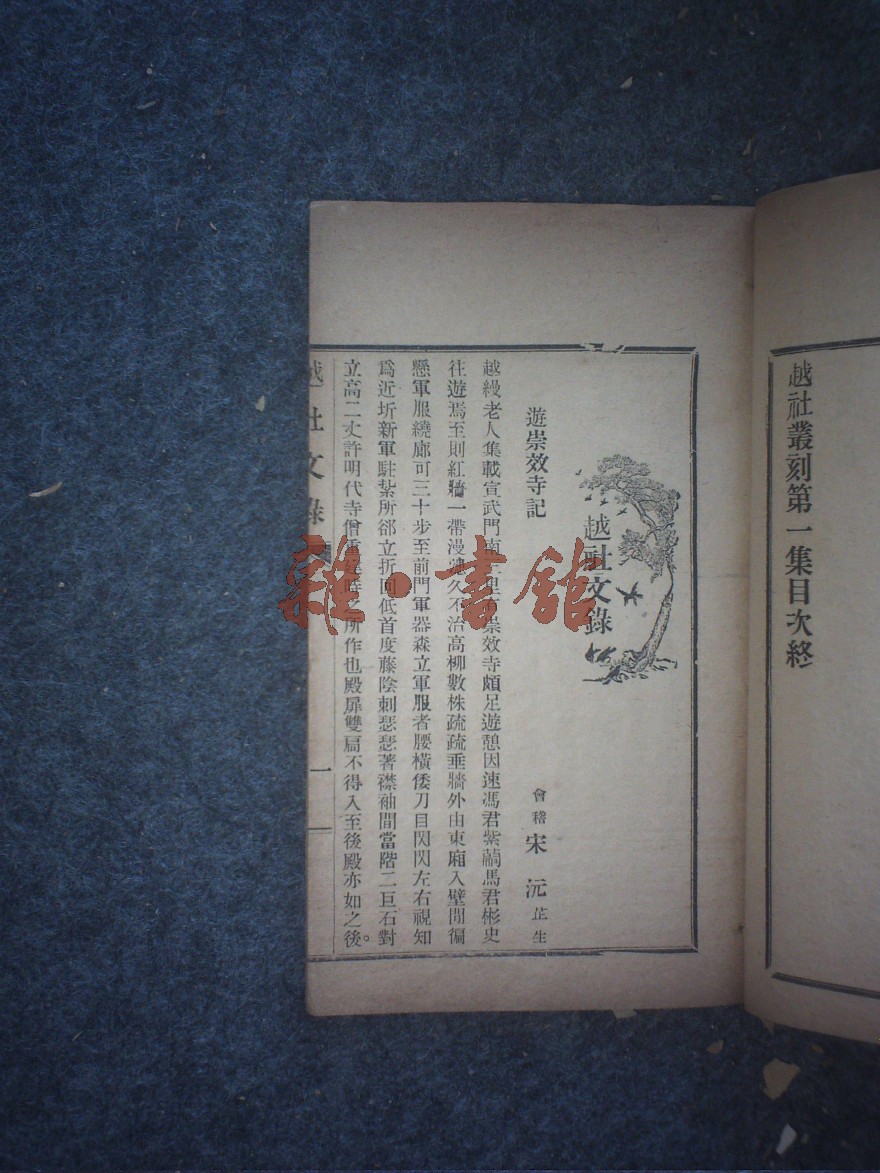 越社叢刻第一集目次終
越社文錄
遊崇效寺記
會稽 宋沅 芷生
越縵老人集載宣武門南 里有崇效寺頗足遊憩因速馮君紫 馬君彬史
往遊焉至則紅牆一帶漫 久不治高柳數株疏疏垂牆外由東廂入壁間徧
懸軍服繞廊可三十步至前門軍器森立軍服者腰橫倭刀目閃閃左右視知
爲近圻新軍駐紮所郤立折回低首度藤陰刺瑟瑟著襟袖間當階二巨石對
立高二丈許明代寺僧重 時之所作也殿扉雙扃不得入至後殿亦如之後。
越社文錄
一
雜·書館